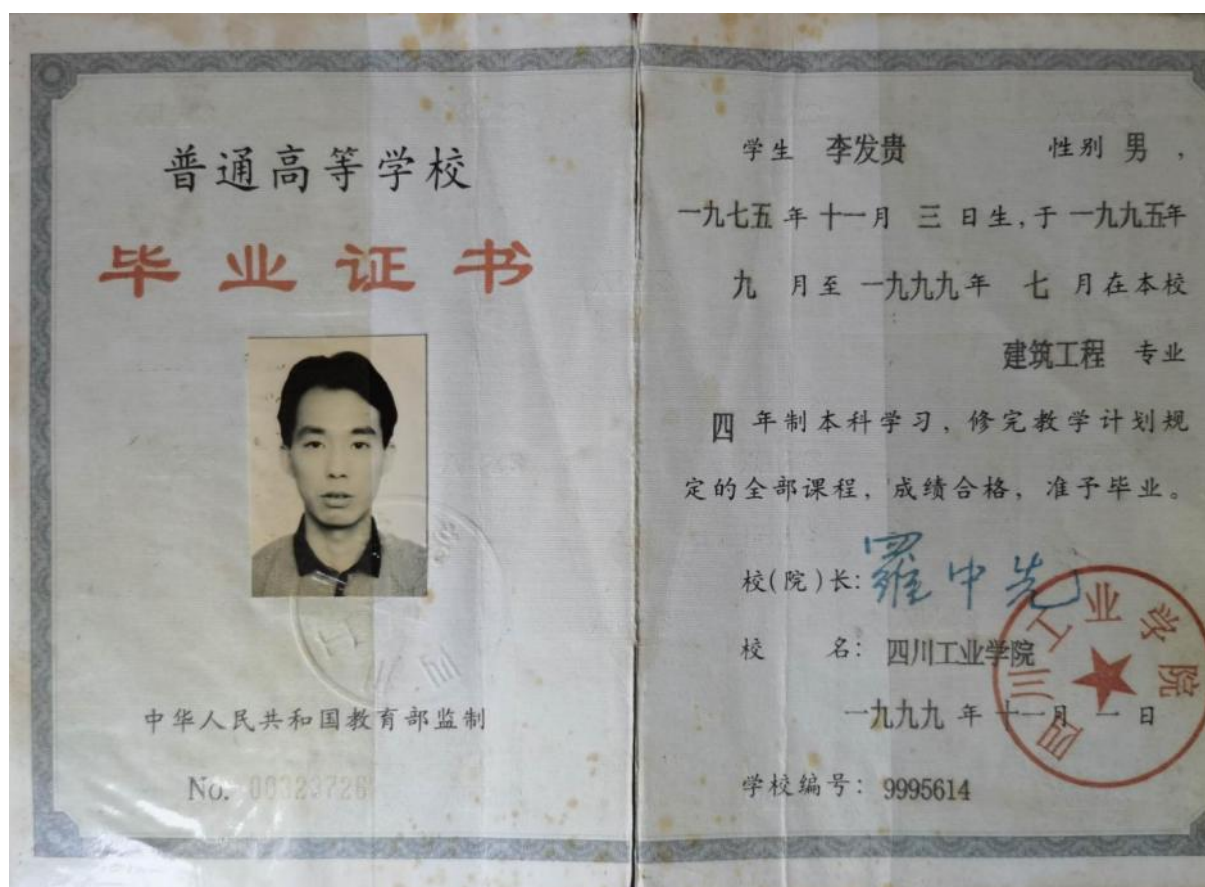 普通高等学校
毕业证书
中华人民共和国教育部监制
No. 00323726
学生 李发贵 性别 男,
一九七五年十一月 三 日生,于一九九五年
九 月至一九九九年 七 月在本校
建筑工程 专业
四 年制本科学习, 修完教学计划规
定的全部课程, 成绩合格, 准予毕业。
校(院)长: 羅中先
校 名: 四川工业学院
一九九九年十一月 一 日
学校编号: 9995614
四川工业学院